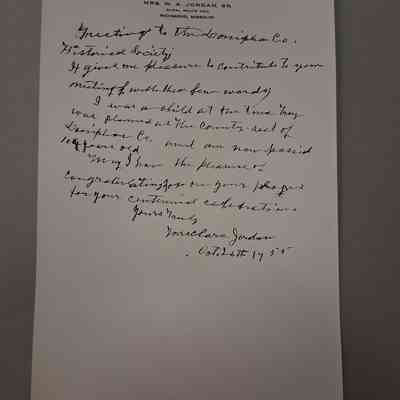 MRS. W. A. JORDAN, SR.
RURAL ROUTE TWO
RICHMOND, MISSOURI
Greeting to the Doniphan Co.
Historical Society
It gives me pleasure to contribute to your
meeting with these few words
I was a child at the time Troy
was planned as the County seat of
Doniphan Co. and am now passed
years old
May I have the pleasure of
congratulating you on your plans
for your centennial celebrations
Yours truly
Clara Jordan
Oct 1955